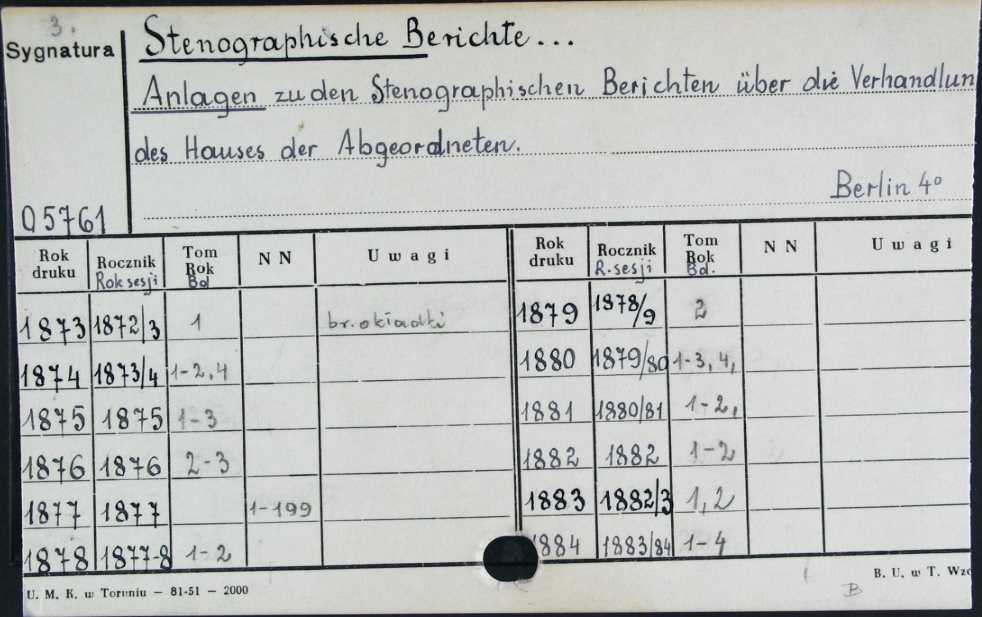 3.
Sygnatura
Stenographische Berichte...
Anlagen zu den Stenographischen Berichten über die Verhandlun
des Hauses der Abgeordneten.
Berlin 4°
05761
Rok druku Rocznik Rok sesji Tom Rok Bd NN Uwagi Rok druku Rocznik R. sesji Tom Rok Bd. NN Uwagi
1873 1872/3 1 br. okładki 1879 1878/9 2
1874 1873/4 1-2, 4 1880 1879/80 1-3, 4,
1875 1875 1-3 1881 1880/81 1-2,
1876 1876 2-3 1882 1882 1-2
1877 1877 1-199 1883 1882/3 1, 2
1878 1877-8 1-2 1884 1883/84 1-4
U. M. K. w Toruniu — 81-51 — 2000
B. U. w T. Wzo
B